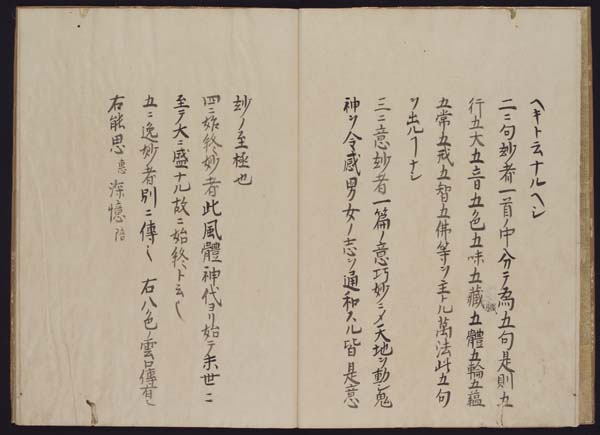 ヘキト云ナルヘシ
二ニ句妙者一首ノ中分テ為五句是則五
行五大五音五色五味五藏五體五輪五蘊
五常五戒五智五佛等ヲ主トル萬法此五句
ヲ出ルヿナシ
三ニ意妙者一篇ノ意巧妙ニメ天地ヲ動シ鬼
神ヲ令感男女ノ志ヲ通和スル皆是意
妙ノ至極也
四ニ始終妙者此風體神代ヨリ始テ末世ニ
至テ大ニ盛ナル故ニ始終ト云々
五ニ逸妙者別ニ傳之 右八色ノ雲口傳有之
右能思 深憶